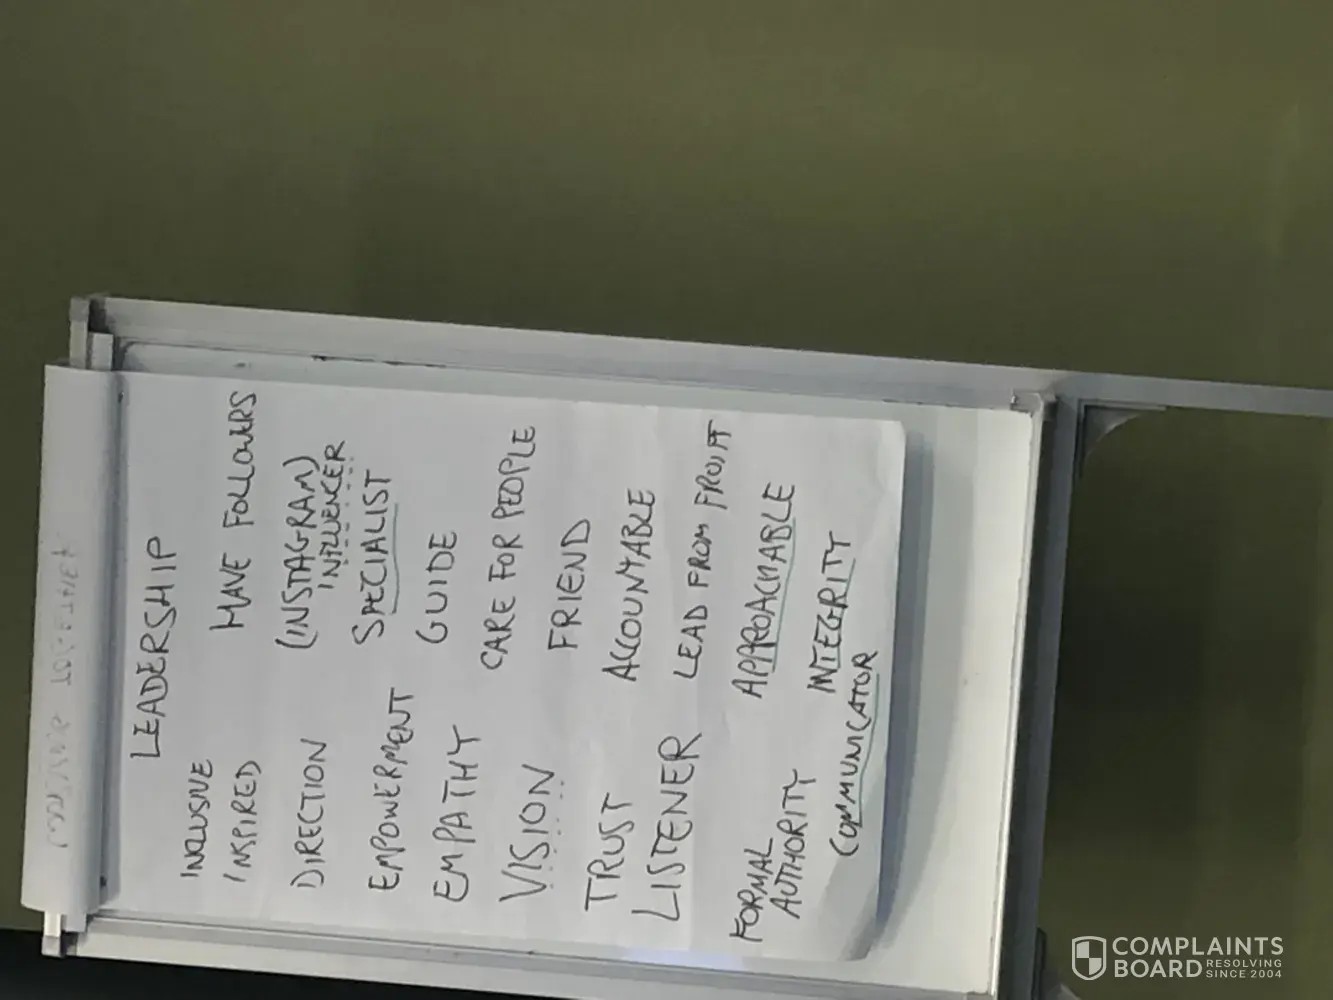 LEADERSHIP
INCLUSIVE
INSPIRED
DIRECTION
EMPOWERMENT
EMPATHY
VISION
TRUST
LISTENER
FORMAL
AUTHORITY
COMMUNICATOR
HAVE FOLLOWERS
(INSTAGRAM)
INFLUENCER
SPECIALIST
GUIDE
CARE FOR PEOPLE
FRIEND
ACCOUNTABLE
LEAD FROM FRONT
APPROACHABLE
INTEGRITY
COMPLAINTS
BOARD RESOLVING
SINCE 2004